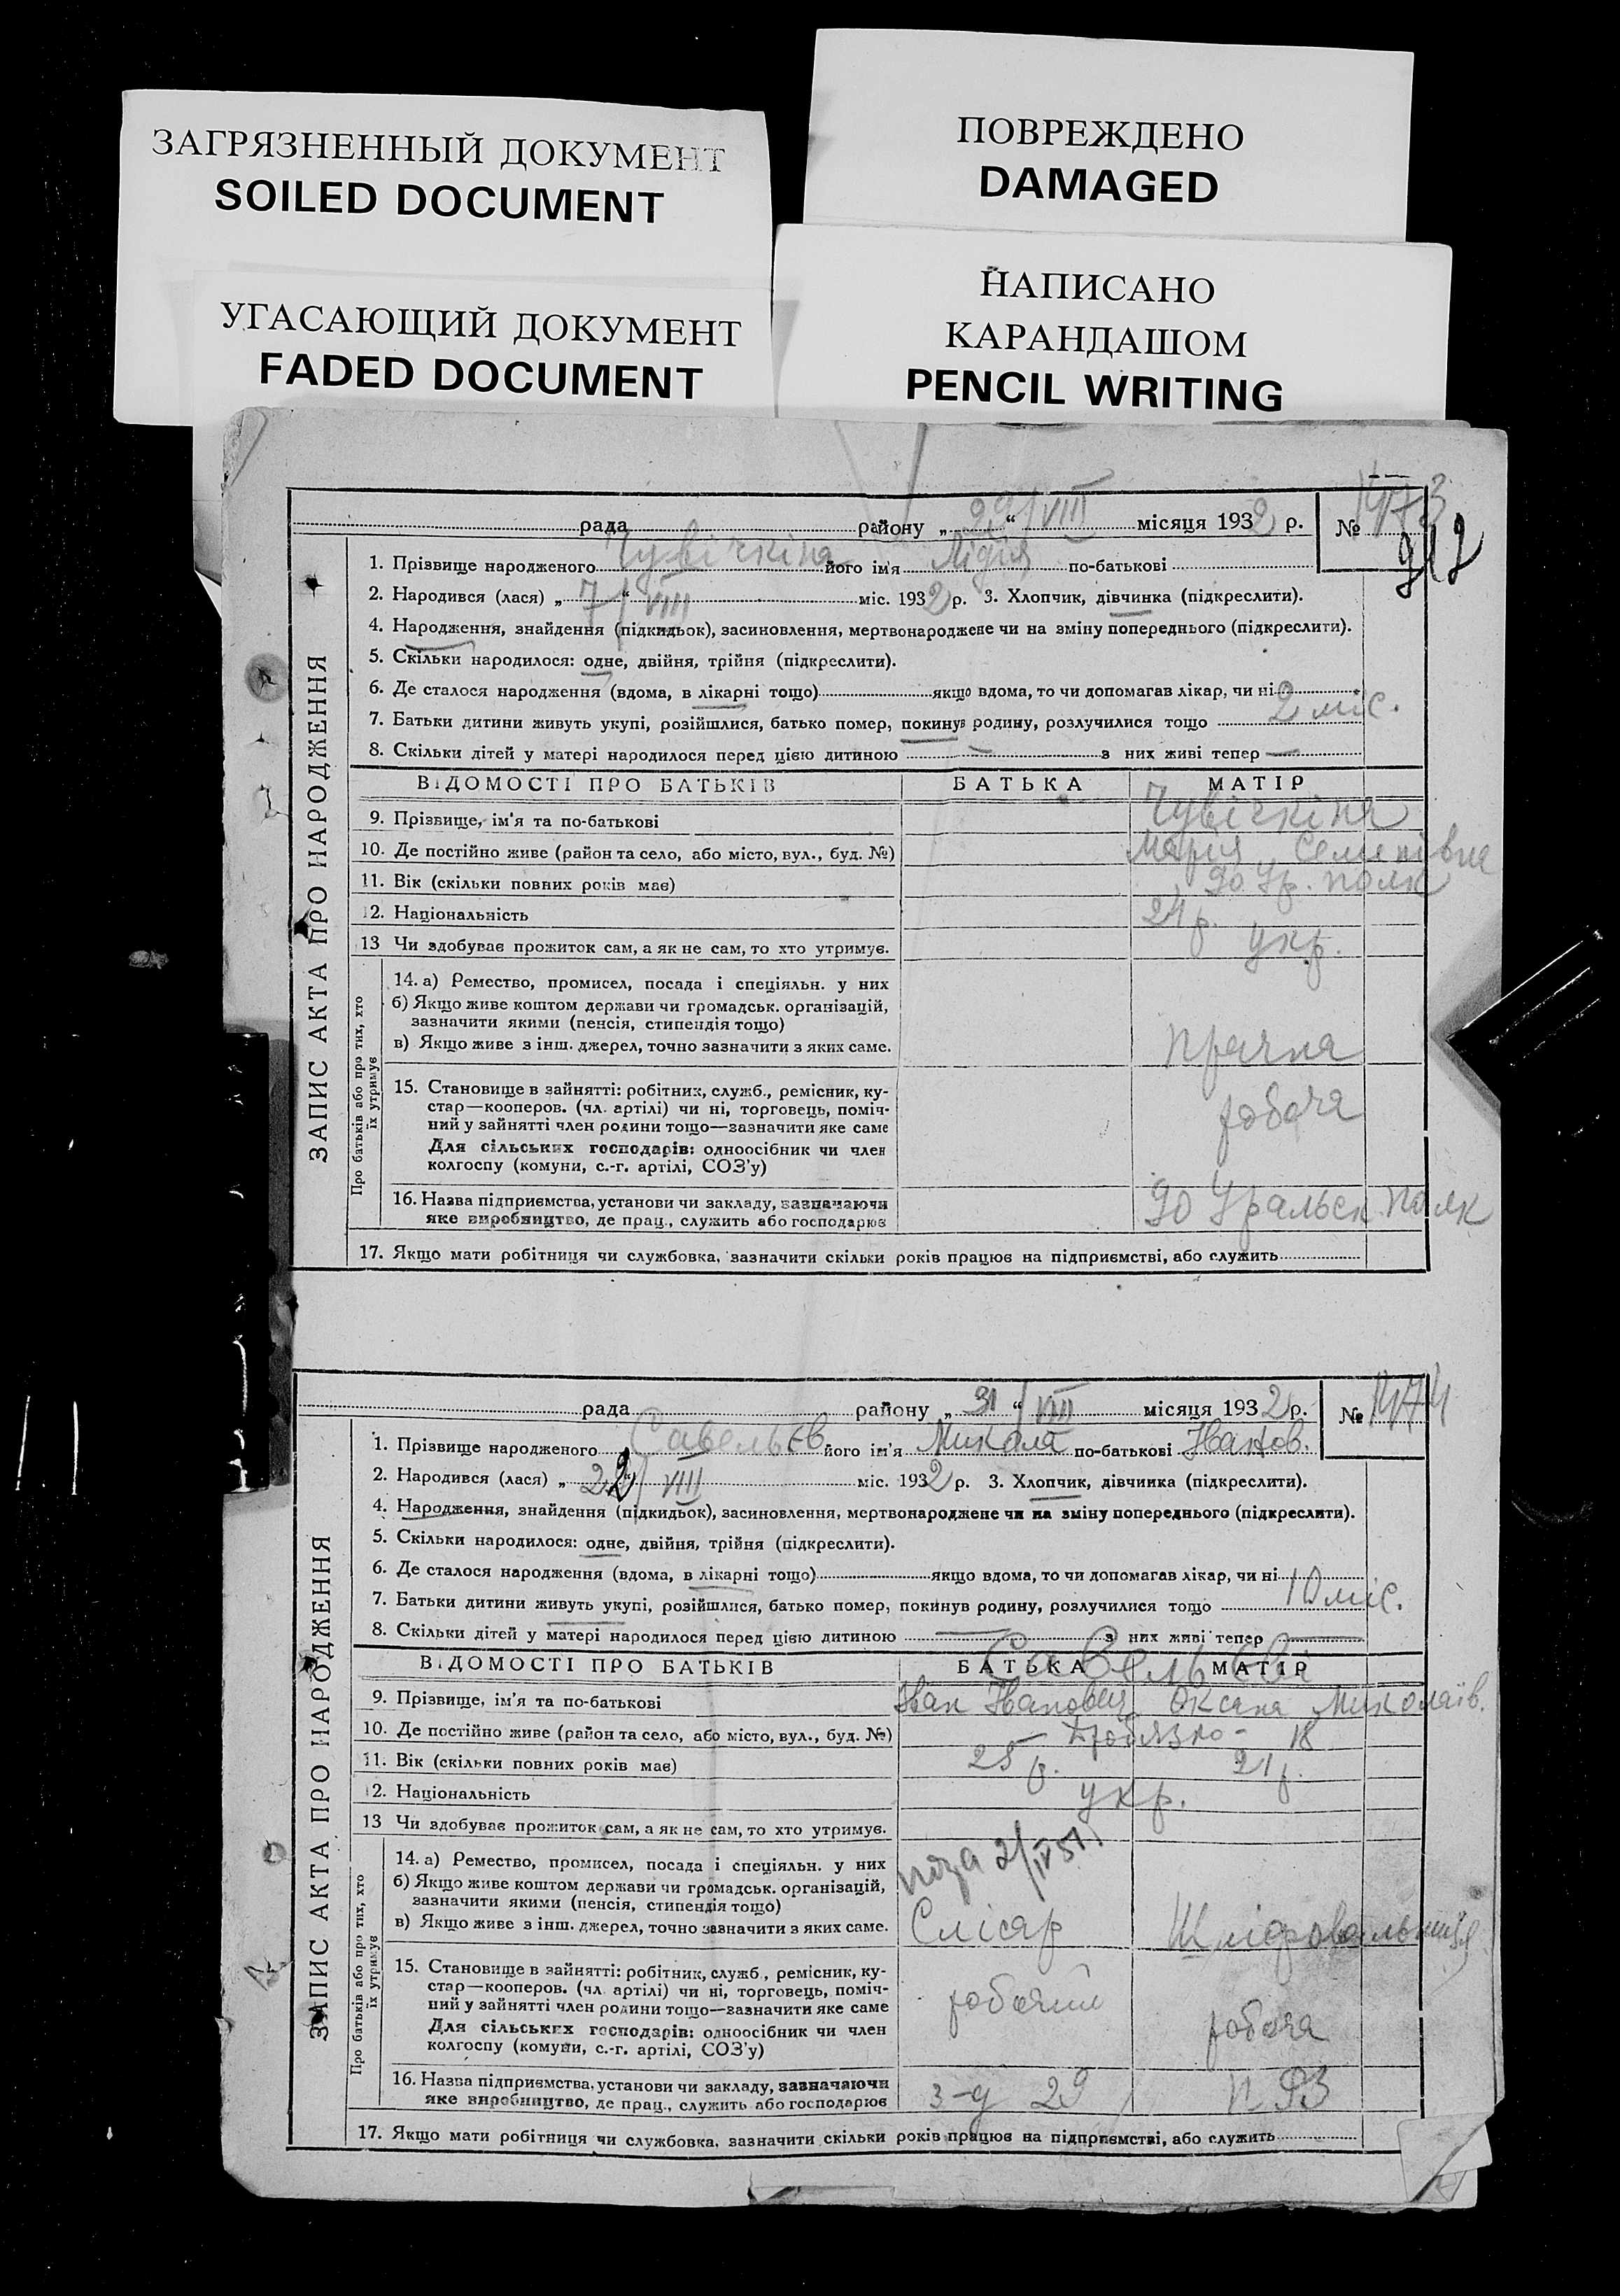 ЗАГРЯЗНЕННЫЙ ДОКУМЕНТ
SOILED DOCUMENT
ПОВРЕЖДЕНО
DAMAGED
УГАСАЮЩИЙ ДОКУМЕНТ
FADED DOCUMENT
НАПИСАНО
КАРАНДАШОМ
PENCIL WRITING
рада району „29“ VIII місяця 1932 р. № 1473
912
ЗАПИС АКТА ПРО НАРОДЖЕННЯ
1. Прізвище народженого Чувічкіна його імя Лідія по-батькові
2. Народився (лася) „7“ VIII міс. 1932 р. 3. Хлопчик, дівчинка (підкреслити).
4. Народження, знайдення (підкидьок), засиновлення, мертвонароджене чи на зміну попереднього (підкреслити).
5. Скільки народилося: одне, двійня, трійня (підкреслити).
6. Де сталося народження (вдома, в лікарні тощо) якщо вдома, то чи допомагав лікар, чи ні
7. Батьки дитини живуть укупі, розійшлися, батько помер, покинув родину, розлучилися тощо 2 міс.
8. Скільки дітей у матері народилося перед цією дитиною — з них живі тепер —
ВІДОМОСТІ ПРО БАТЬКІВ БАТЬКА МАТІР
9. Прізвище, ім'я та по-батькові Чувічкіна
Мария Семенівна
10. Де постійно живе (район та село, або місто, вул., буд. №) 90 Ур. полк
11. Вік (скільки повних років має) 24 р.
12. Національність укр.
13 Чи здобуває прожиток сам, а як не сам, то хто утримує.
Про батьків або про тих, хто їх утримує
14. а) Ремество, промисел, посада і спеціяльн. у них
б) Якщо живе коштом держави чи громадськ. організацій,
зазначити якими (пенсія, стипендія тощо)
в) Якщо живе з інш. джерел, точно зазначити з яких саме. прачка
15. Становище в зайнятті: робітник, служб., ремісник, ку-
стар—кооперов. (чл. артілі) чи ні, торговець, поміч- робоча
ний у зайнятті член родини тощо—зазначити яке саме
Для сільських господарів: одноосібник чи член
колгоспу (комуни, с.-г. артілі, СОЗ'у)
16. Назва підприємства, установи чи закладу, зазначаючи 90 Уральск полк
яке виробництво, де прац., служить або господарює
17. Якщо мати робітниця чи службовка, зазначити скільки років працює на підприємстві, або служить
рада району „31“ VIII місяця 1932 р. № 1474
ЗАПИС АКТА ПРО НАРОДЖЕННЯ
1. Прізвище народженого Савельєв його ім'я Микола по-батькові Іванов.
2. Народився (лася) „22“ VIII міс. 1932 р. 3. Хлопчик, дівчинка (підкреслити).
4. Народження, знайдення (підкидьок), засиновлення, мертвонароджене чи на зміну попереднього (підкреслити).
5. Скільки народилося: одне, двійня, трійня (підкреслити).
6. Де сталося народження (вдома, в лікарні тощо) якщо вдома, то чи допомагав лікар, чи ні
7. Батьки дитини живуть укупі, розійшлися, батько помер, покинув родину, розлучилися тощо 10 міс.
8. Скільки дітей у матері народилося перед цією дитиною — з них живі тепер —
Савельєві
ВІДОМОСТІ ПРО БАТЬКІВ БАТЬКА МАТІР
9. Прізвище, ім'я та по-батькові Іван Іванович Оксана Миколаїв.
10. Де постійно живе (район та село, або місто, вул., буд. №) 18
11. Вік (скільки повних років має) 25 р. 21 р.
12. Національність укр.
13 Чи здобуває прожиток сам, а як не сам, то хто утримує.
Про батьків або про тих, хто їх утримує
14. а) Ремество, промисел, посада і спеціяльн. у них
б) Якщо живе коштом держави чи громадськ. організацій,
зазначити якими (пенсія, стипендія тощо)
в) Якщо живе з інш. джерел, точно зазначити з яких саме. Слісар Шліфовальниця
15. Становище в зайнятті: робітник, служб., ремісник, ку-
стар—кооперов. (чл. артілі) чи ні, торговець, поміч- робочий робоча
ний у зайнятті член родини тощо—зазначити яке саме
Для сільських господарів: одноосібник чи член
колгоспу (комуни, с.-г. артілі, СОЗ'у)
16. Назва підприємства, установи чи закладу, зазначаючи з-д 29 п ФЗ
яке виробництво, де прац., служить або господарює
17. Якщо мати робітниця чи службовка, зазначити скільки років працює на підприємстві, або служить